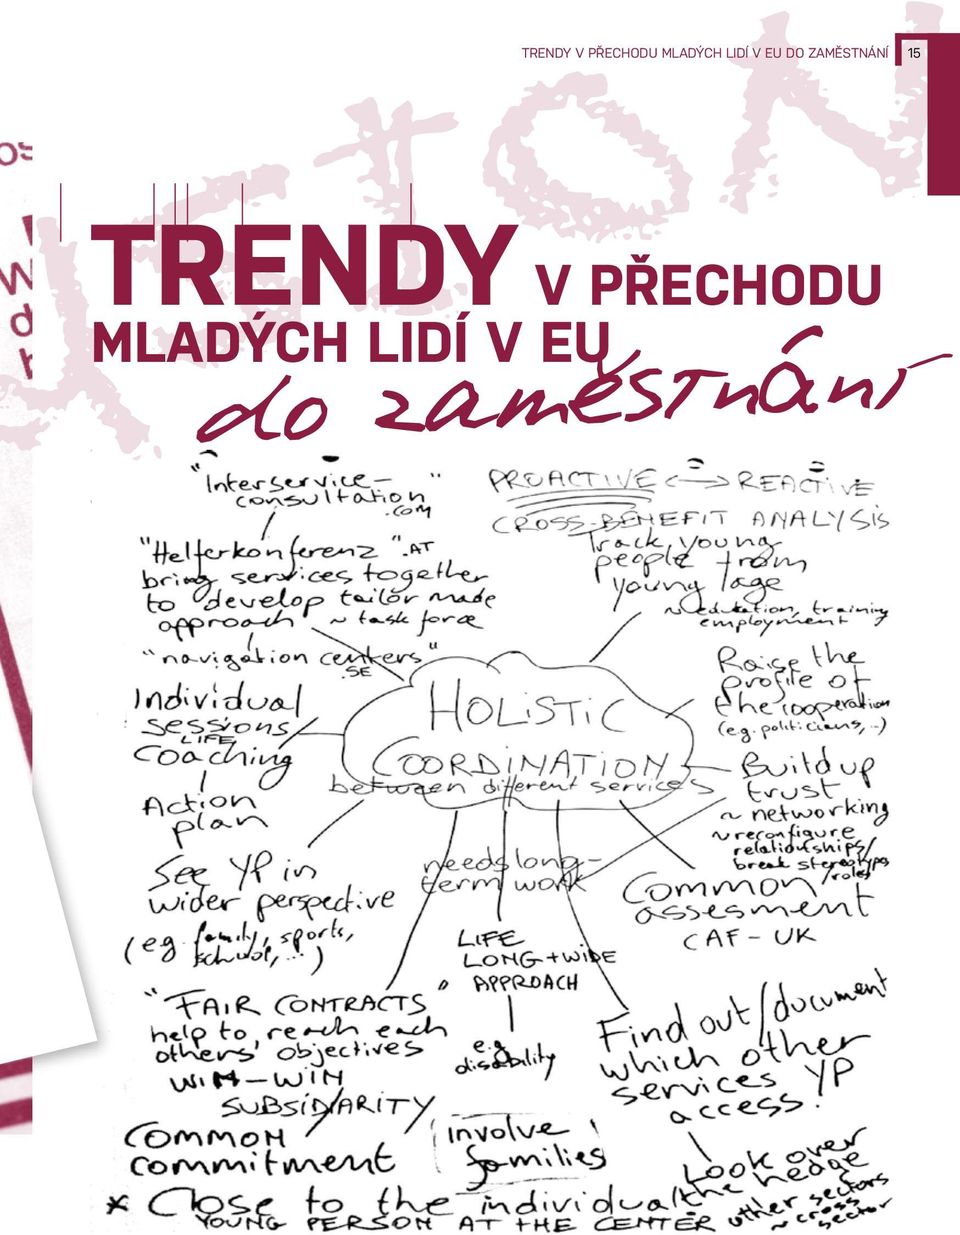 TRENDY V PŘECHODU MLADÝCH LIDÍ V EU DO ZAMĚSTNÁNÍ 15
TRENDY V PŘECHODU
MLADÝCH LIDÍ V EU
do zaměstnání
"Interservice-
consultation"
.com
"Helferkonferenz".AT
bring services together
to develop tailor made
approach ~ task force
"navigation centers"
.SE
Individual
sessions/
LIFE
Coaching
Action
plan
See YP in
wider perspective
(eg. family, sports,
school, ...)
"FAIR CONTRACTS"
help to reach each
others' objectives
WIN-WIN
SUBSIDIARITY
COMMON
commitment
PROACTIVE <-> REACTIVE
CROSS-BENEFIT ANALYSIS
Track young
people from
young age
~ education, training
employment
Raise the
profile of
the cooperation
(e.g. politicians, ..)
Build up
trust
~ networking
~ reconfigure
relationships/
break stereotypes
/roles
HOLISTIC
COORDINATION
between different services
needs long-
term work
Common
assesment
CAF-UK
LIFE
LONG+WIDE
APPROACH
e.g
disability
Find out/document
which other
services YP
access!
involve
families
Look over
the hedge
other sectors
~ cross
sector
* Close to the individual/
YOUNG PERSON AT THE CENTER